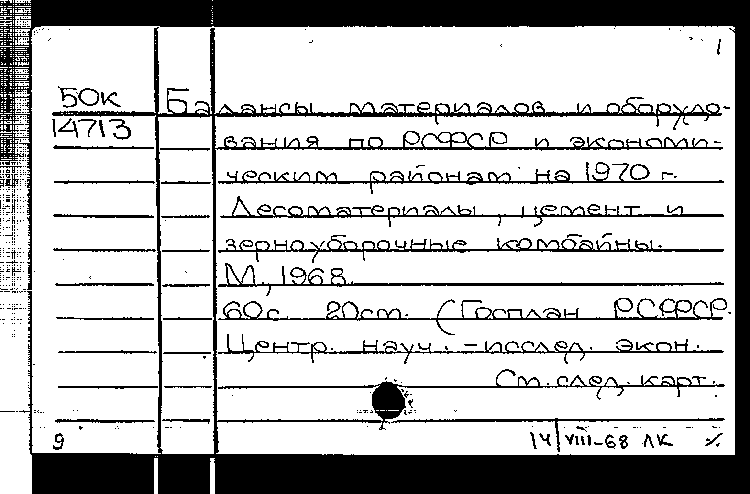 1
БОК Балансы материалов и оборудо-
14713 вания по РСФСР и экономи-
ческим районам на 1970 г.
Лесоматериалы, цемент и
зерноуборочные комбайны.
М., 1968.
60с. 20см. (Госплан РСФСР.
Центр. науч.-исслед. экон.
См. след. карт.
9 14/VIII-68 ЛК